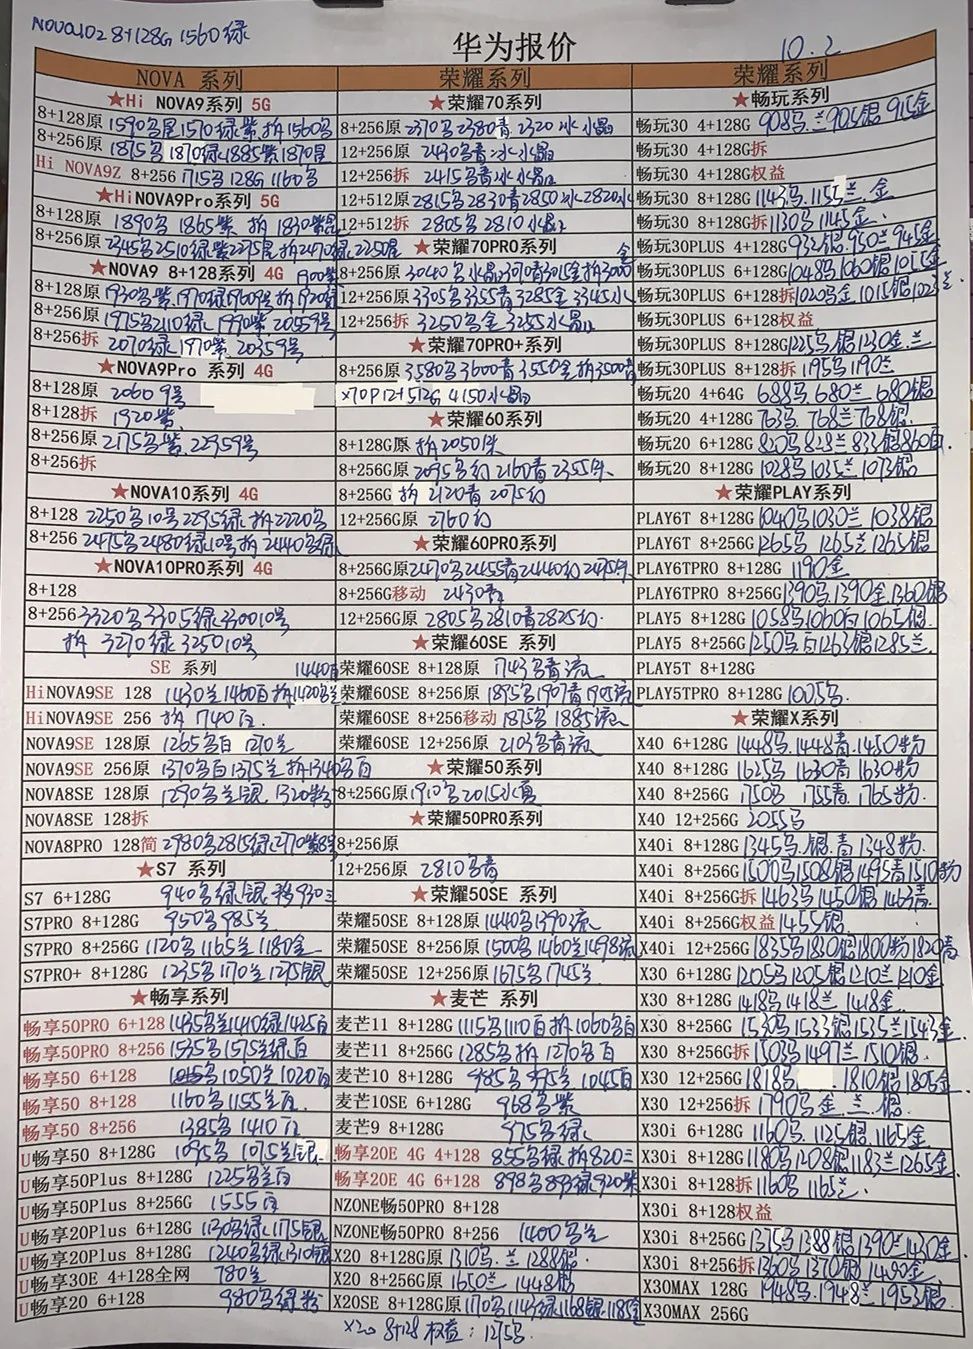 NOVA10Z 8+128G 1560绿
华为报价
10.2
NOVA 系列
★Hi NOVA9系列 5G
8+128原 1590名星1570绿紫 拆1560名
8+256原 1875名 1870绿1885紫1870星
Hi NOVA9Z 8+256 1715名 128G 1160名
★HiNOVA9Pro系列 5G
8+128原 1890名 1865紫 拆 1830紫
8+256原
★NOVA9 8+128系列 4G
8+128原
8+256原
8+256拆 2070绿 1970紫 20359号
★NOVA9Pro 系列 4G
8+128原 2060 9号
8+128拆 1920紫
8+256原 2175名紫 22959号
8+256拆
★NOVA10系列 4G
8+128 2250名10号2295绿 拆2220名
8+256 2475名2480绿10号 拆2440名绿
★NOVA10PRO系列 4G
8+128
8+256 3320名3305绿330010号
拆 3270绿 325010号
SE 系列
HiNOVA9SE 128 1430兰1460白拆1420名兰
HiNOVA9SE 256 拆 1740白
NOVA9SE 128原 1265名白 1270兰
NOVA9SE 256原 1370名白1375兰 拆1340名白
NOVA8SE 128原 1290名兰银 1320粉
NOVA8SE 128拆
NOVA8PRO 128简 2980名2815绿2770紫
★S7 系列
S7 6+128G 940名绿银 移930兰
S7PRO 8+128G 950名985兰
S7PRO 8+256G 1120名 1165兰 1180金
S7PRO+ 8+128G 1235名 1170兰 1275银
★畅享系列
畅享50PRO 6+128 1435名兰1410绿1425白
畅享50PRO 8+256 1535名1575兰绿白
畅享50 6+128 1050兰 1020白
畅享50 8+128 1160名 1155兰白
畅享50 8+256 1385名 1410白
U畅享50 8+128G 1095名 1075兰银
U畅享50Plus 8+128G 1225名兰白
U畅享50Plus 8+256G 1555白
U畅享20Plus 6+128G 1130名绿 1175银
U畅享20Plus 8+128G 1240名绿1310银
U畅享30E 4+128全网 780兰
U畅享20 6+128 980名绿粉
荣耀系列
★荣耀70系列
8+256原 2370名 2380青 2320 冰 水晶
12+256原 2430名青 冰 水晶
12+256拆 2415名青冰 水晶
12+512原 2815名2830青2850冰2820水
12+512拆 2805名 2810水晶
★荣耀70PRO系列
8+256原 3040名水晶3070青3015金拆3000金
12+256原 3305名3355青3285金3345水
12+256拆 3250名金3255水晶
★荣耀70PRO+系列
8+256原 3580名3600青3550金拆3500青
x70P12+512G 4150水晶
★荣耀60系列
8+128G原 拆2050
8+256G原
8+256G 拆 2120青 2075幻
12+256G原 2760幻
★荣耀60PRO系列
8+256G原2470名2455青2440幻
8+256G移动 2430青
12+256G原 2805名2810青2825幻
★荣耀60SE 系列
荣耀60SE 8+128原 1743名青流
荣耀60SE 8+256原 1895名1907青1905流
荣耀60SE 8+256移动 1875名1885流
荣耀60SE 12+256原 2103名青流
★荣耀50系列
8+256G原1910名2015水夏
★荣耀50PRO系列
8+256原
12+256原 2810名青
★荣耀50SE 系列
荣耀50SE 8+128原 1440名1390流
荣耀50SE 8+256原 1500名 1460兰1498流
荣耀50SE 12+256原 1675名1745兰
★麦芒 系列
麦芒11 8+128G 1115名1110白 拆1060名白
麦芒11 8+256G 1285名 拆 1270名白
麦芒10 8+256G 985名 975兰 1045白
麦芒10SE 6+128G 968名紫
麦芒9 8+128G 975名绿
畅享20E 4G 4+128 855名绿 拆820兰
畅享20E 4G 6+128 898名893绿920紫
NZONE畅50PRO 8+128
NZONE畅50PRO 8+256 1400名兰
X20 8+128G原 1310名.兰 1288银
X20 8+256G原 1650兰 1448银
X20SE 8+128G原 1170名1143绿1168银1185金
x20 8+128 权益：1275名
荣耀系列
★畅玩系列
畅玩30 4+128G 908名.兰905银 915金
畅玩30 4+128G拆
畅玩30 4+128G权益
畅玩30 8+128G 1143名.1155兰.金
畅玩30 8+128G拆1130名 1145金
畅玩30PLUS 4+128G 932银950兰945金
畅玩30PLUS 6+128G 1048名1060银1055金
畅玩30PLUS 6+128拆1020名金
畅玩30PLUS 6+128权益
畅玩30PLUS 8+128G1225名银1230金.兰
畅玩30PLUS 8+128拆 1195名 1190兰
畅玩20 4+64G 688名 680兰 680银
畅玩20 4+128G 763名 768兰768银
畅玩20 6+128G 820名828兰833银860白
畅玩20 8+128G 1028名 1035兰 1073银
★荣耀PLAY系列
PLAY6T 8+128G 1040名1030兰 1038银
PLAY6T 8+256G 1265名 1265兰1265银
PLAY6TPRO 8+128G 1190金
PLAY6TPRO 8+256G1390名1390金1360银
PLAY5 8+128G 1058名1060白1065银
PLAY5 8+256G 1250名白1263银1285兰
PLAY5T 8+128G
PLAY5TPRO 8+128G 1005名
★荣耀X系列
X40 6+128G 1448名.1448青.1450粉
X40 8+128G 1625名 1630青 1630粉
X40 8+256G 1750名 1755青.1765粉
X40 12+256G 2055名
X40i 8+128G 1345名.银.青 1348粉
X40i 8+256G1500名1508银1495青1510粉
X40i 8+256G拆 1463名1450银 1463青
X40i 8+256G权益 1455银
X40i 12+256G 1835名1830银1800粉1820青
X30 6+128G 1205名1205银1210兰1210金
X30 8+128G 1418名1418兰.1418金
X30 8+256G 1530名1533银1535兰1543金
X30 8+256G拆 1503名1497兰 1510银
X30 12+256G 1818名 1810银 1805金
X30 12+256拆 1790名金.兰.银
X30i 6+128G 1160名 1125银 1165金
X30i 8+128G 1180名1208银1183兰1265金
X30i 8+128拆 1160名 1165兰
X30i 8+128权益
X30i 8+256G 1375名1388银1390兰1430金
X30i 8+256拆 1360名1370银1400金
X30MAX 128G 1948名.1948兰 1953银
X30MAX 256G